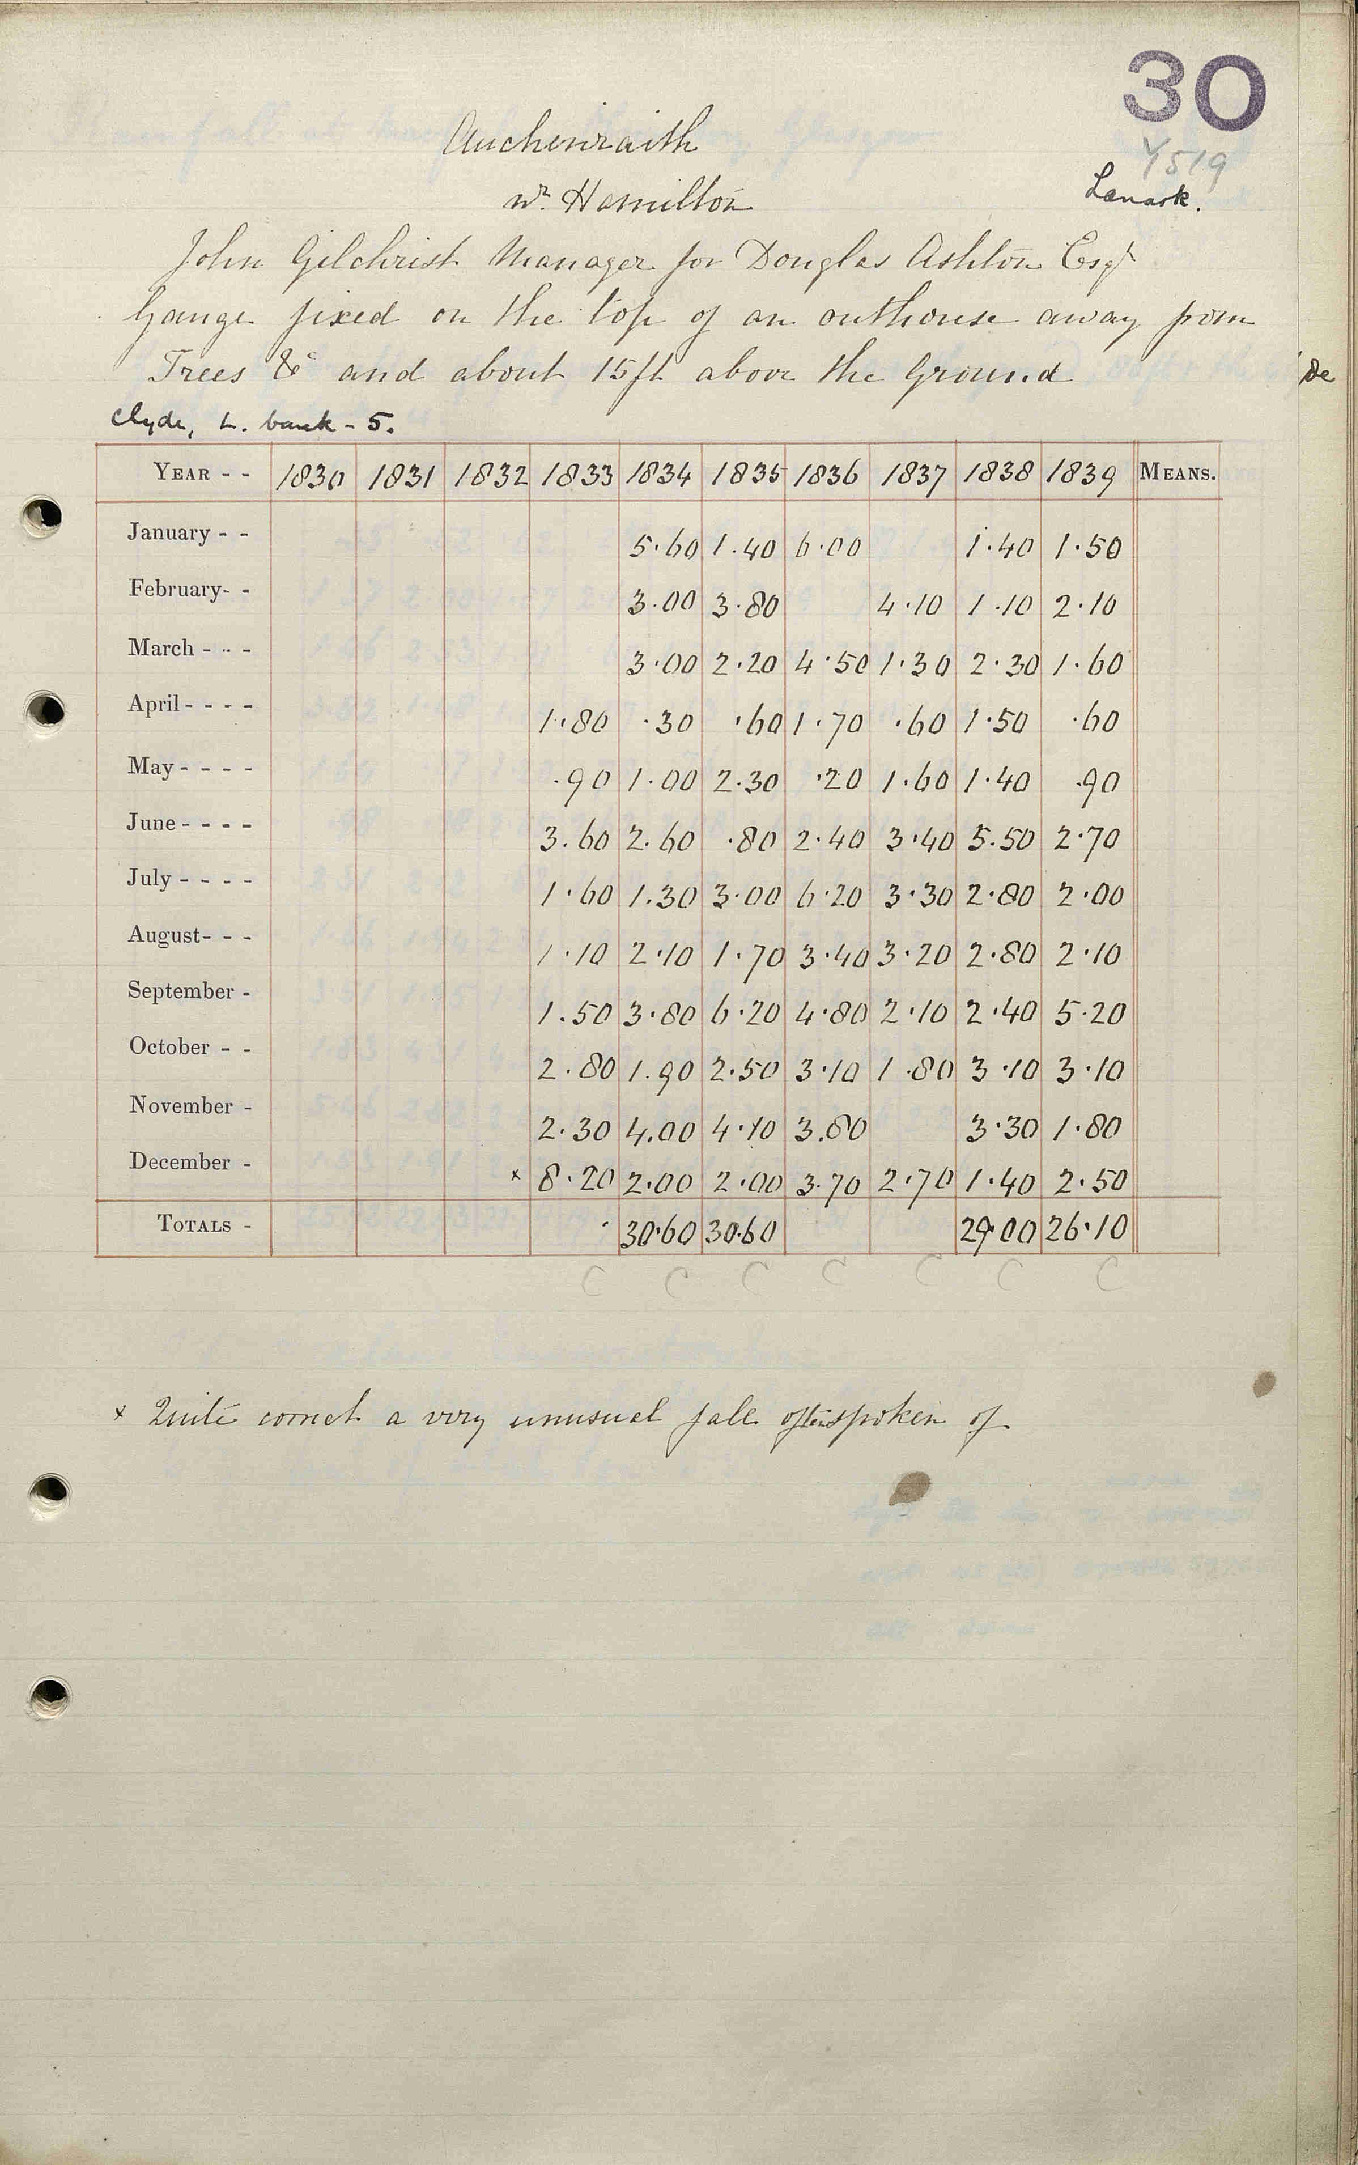 30
Auchenraith
Lanark.
nr Hamilton
John Gilchrist Manager for Douglas Ashton Esqr
Gauge fixed on the top of an outhouse away from
Trees &c and about 15ft above the Ground
De
Clyde, L. bank - 5.
YEAR - - 1830 1831 1832 1833 1834 1835 1836 1837 1838 1839 MEANS.
January - - 5.60 1.40 6.00 1.40 1.50
February- - 3.00 3.80 4.10 1.10 2.10
March - - - 3.00 2.20 4.50 1.30 2.30 1.60
April - - - - 1.80 .30 .60 1.70 .60 1.50 .60
May - - - - .90 1.00 2.30 .20 1.60 1.40 .90
June - - - - 3.60 2.60 .80 2.40 3.40 5.50 2.70
July - - - - 1.60 1.30 3.00 6.20 3.30 2.80 2.00
August- - - 1.10 2.10 1.70 3.40 3.20 2.80 2.10
September - 1.50 3.80 6.20 4.80 2.10 2.40 5.20
October - - 2.80 1.90 2.50 3.10 1.80 3.10 3.10
November - 2.30 4.00 4.10 3.80 3.30 1.80
December - x 8.20 2.00 2.00 3.70 2.70 1.40 2.50
TOTALS - 30.60 30.60 29.00 26.10
C C C C C C C
x Quite correct a very unusual fall often spoken of